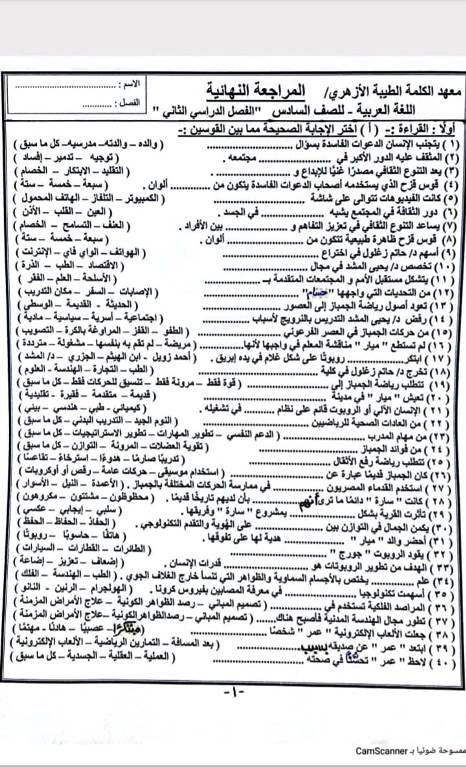 معهد الكلمة الطيبة الأزهري/ المراجعة النهائية
الاسم : ..................
اللغة العربية - للصف السادس "الفصل الدراسي الثاني"
الفصل : ..........
أولًا : القراءة :- ( أ ) اختر الإجابة الصحيحة مما بين القوسين :-
(١) يتجنب الإنسان الدعوات الفاسدة بسؤال .......... ( والده – والدته – مدرسيه- كل ما سبق )
(٢) المثقف عليه الدور الأكبر في .......... مجتمعه . ( توجيه – تدمير – إفساد )
(٣) يعد التنوع الثقافي مصدرًا غنيًا للإبداع و .......... ( التقليد – الابتكار – الخصام )
(٤) قوس قزح الذي يستخدمه أصحاب الدعوات الفاسدة يتكون من .......... ألوان . ( سبعة – خمسة – ستة )
(٥) كانت الفيديوهات تتوالى على شاشة .......... ( الكمبيوتر – التلفاز – الهاتف المحمول )
(٦) دور الثقافة في المجتمع يشبه .......... في الجسد . ( العين – القلب – الأذن )
(٧) يساعد التنوع الثقافي في تعزيز التفاهم و .......... بين الأفراد . ( العنف – التسامح – الخصام )
(٨) قوس قزح ظاهرة طبيعية تتكون من .......... ألوان . ( سبعة – خمسة – ستة )
(٩) أسهم د/ حاتم زغلول في اختراع .......... ( الهواتف – الواي فاي – الإنترنت )
(١٠) تخصص د/ يحيى المشد في مجال .......... ( الاقتصاد – الطب – الذرة )
(١١) يتشكل مستقبل الأمم و المجتمعات المتقدمة بـ .......... ( الأسلحة – العلم – الفقر )
(١٢) من التحديات التي واجهها "حسام" .......... ( الإصابات – السفر – مكان التدريب )
(١٣) تعود أصول رياضة الجمباز إلى العصور .......... ( الحديثة – القديمة – الوسطى )
(١٤) رفض د/ يحيى المشد التدريس بالنرويج لأسباب .......... ( اجتماعية – أسرية – سياسية – مادية )
(١٥) من حركات الجمباز في العصر الفرعوني .......... ( الطفو – القفز – المراوغة بالكرة – التصويب )
(١٦) لم تستطع " ميار " مناقشة المعلم في واجبها لأنها.......... ( مريضة – لم تقم به بنفسها – مشغولة – مترددة )
(١٧) ابتكر .......... روبوتًا على شكل غلام في يده إبريق . ( أحمد زويل - ابن الهيثم – الجزري – د/ المشد )
(١٨) تخرج د/ حاتم زغلول في كلية .......... ( الطب – التجارة – الهندسة – العلوم )
(١٩) تتطلب رياضة الجمباز إلى .......... ( قوة فقط – مرونة فقط – تنسيق للحركات فقط – كل ما سبق )
(٢٠) تعيش " ميار " في مدينة .......... ( قديمة – متقدمة – فقيرة – تقليدية )
(٢١) الإنسان الآلي أو الروبوت قائم على نظام .......... في تشغيله . ( كيميائي – طبي – هندسي – بيئي )
(٢٢) من العادات الصحية للرياضيين .......... ( النوم الجيد – التدريب البدني – كل ما سبق )
(٢٣) من مهام المدرب .......... ( الدعم النفسي – تطوير المهارات – تطوير الاستراتيجيات – كل ما سبق )
(٢٤) من فوائد الجمباز .......... ( تقوية العضلات – المرونة – التوازن – كل ما سبق )
(٢٥) تتطلب رياضة رفع الأثقال .......... ( تدريبًا صارمًا – هدوءًا – استرخاءً – تقاعسًا )
(٢٦) كان الجمباز قديمًا عبارة عن .......... ( استخدام موسيقى – حركات عامة – رقص أو أوكروبات )
(٢٧) استخدم القدماء المصريون .......... في ممارسة الحركات المختلفة بالجمباز . ( الأعمدة – النيل – الأسوار )
(٢٨) كانت " سارة " دائمًا ما ترى أنهم .......... بأن لديهم تاريخًا قديمًا . ( محظوظون – مشتتون – مكروهون )
(٢٩) تأثرت القرية بشكل .......... بمشروع " سارة " وفريقها . ( سلبي – إيجابي – عكسي )
(٣٠) يكمن الجمال في التوازن بين .......... على الهوية والتقدم التكنولوجي . ( الحفاذ – الحفاظ – الحفظ )
(٣١) أحضر والد " ميار " .......... هدية لها على تفوقها . ( هاتفًا – حاسوبًا – روبوتًا )
(٣٢) يقود الروبوت " جورج " .......... ( الطائرات – القطارات – السيارات )
(٣٣) الهدف من تطوير الروبوتات هو .......... قدرات الإنسان . ( إضعاف – تعزيز – إضاعة )
(٣٤) علم .......... يختص بالأجسام السماوية والظواهر التي تنشأ خارج الغلاف الجوي . ( الطب – الهندسة – الفلك )
(٣٥) أسهمت تكنولوجيا .......... في معرفة المصابين بفيروس كرونا . ( الهولجرام – الرنين – النانو )
(٣٦) المراصد الفلكية تستخدم في .......... ( تصميم المباني – رصد الظواهر الكونية – علاج الأمراض المزمنة )
(٣٧) تطور مجال الهندسة المدنية فأصبح هناك.......... ( تصميم المباني – رصد الظواهر الكونية – علاج الأمراض المزمنة )
(٣٨) جعلت الألعاب الإلكترونية " عمر " شخصًا .......... ( عصبيًا – هادئًا – مهتمًا )
(٣٩) ابتعد " عمر " عن صديقه بسبب .......... ( بعد المسافة – التمارين الرياضية – الألعاب الإلكترونية )
(٤٠) لاحظ " عمر " تحسنًا في صحته .......... ( العملية – العقلية – الجسدية – كل ما سبق )
-١-
الممسوحة ضوئيا بـ CamScanner